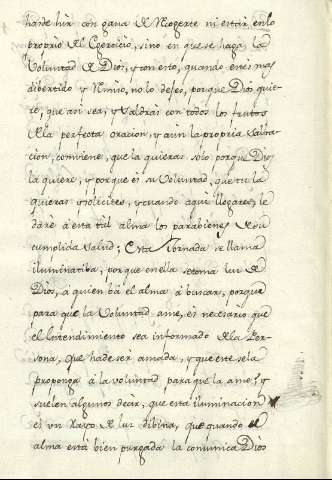 hasde hir con gana de Recogerte ni estar en lo
proprio del Egercicio, sino en que se haga la
Voluntad de Dios, y con esto, quando estes mas
dibertido y Remiso, no lo dejes, porque Dios quie-
re, que asi sea, y Valdras con todos los frutos
de la perfecta oracion, y aun la propria Salva-
cion, comviene, que la quieras solo porque Dios
la quiere, y porque es su Voluntad, que tu la
quieras y solicites, y quando aqui llegares, le
daré à esta tal alma los parabienes de su
cumplida Salud; Esta Jornada se llama
iluminatiba, porque en ella se toma luz de
Dios, a quien bà el alma à buscar, porque
para que la Voluntad ame, es necesario que
el Entendimiento sea informado de la Per-
sona, que ha de ser amada, y que este se la
proponga à la voluntad para que la ame, y
suelen algunos decir, que esta iluminacion
es un Rayo de luz dibina, que quando el
alma está bien purgada la comunica Dios